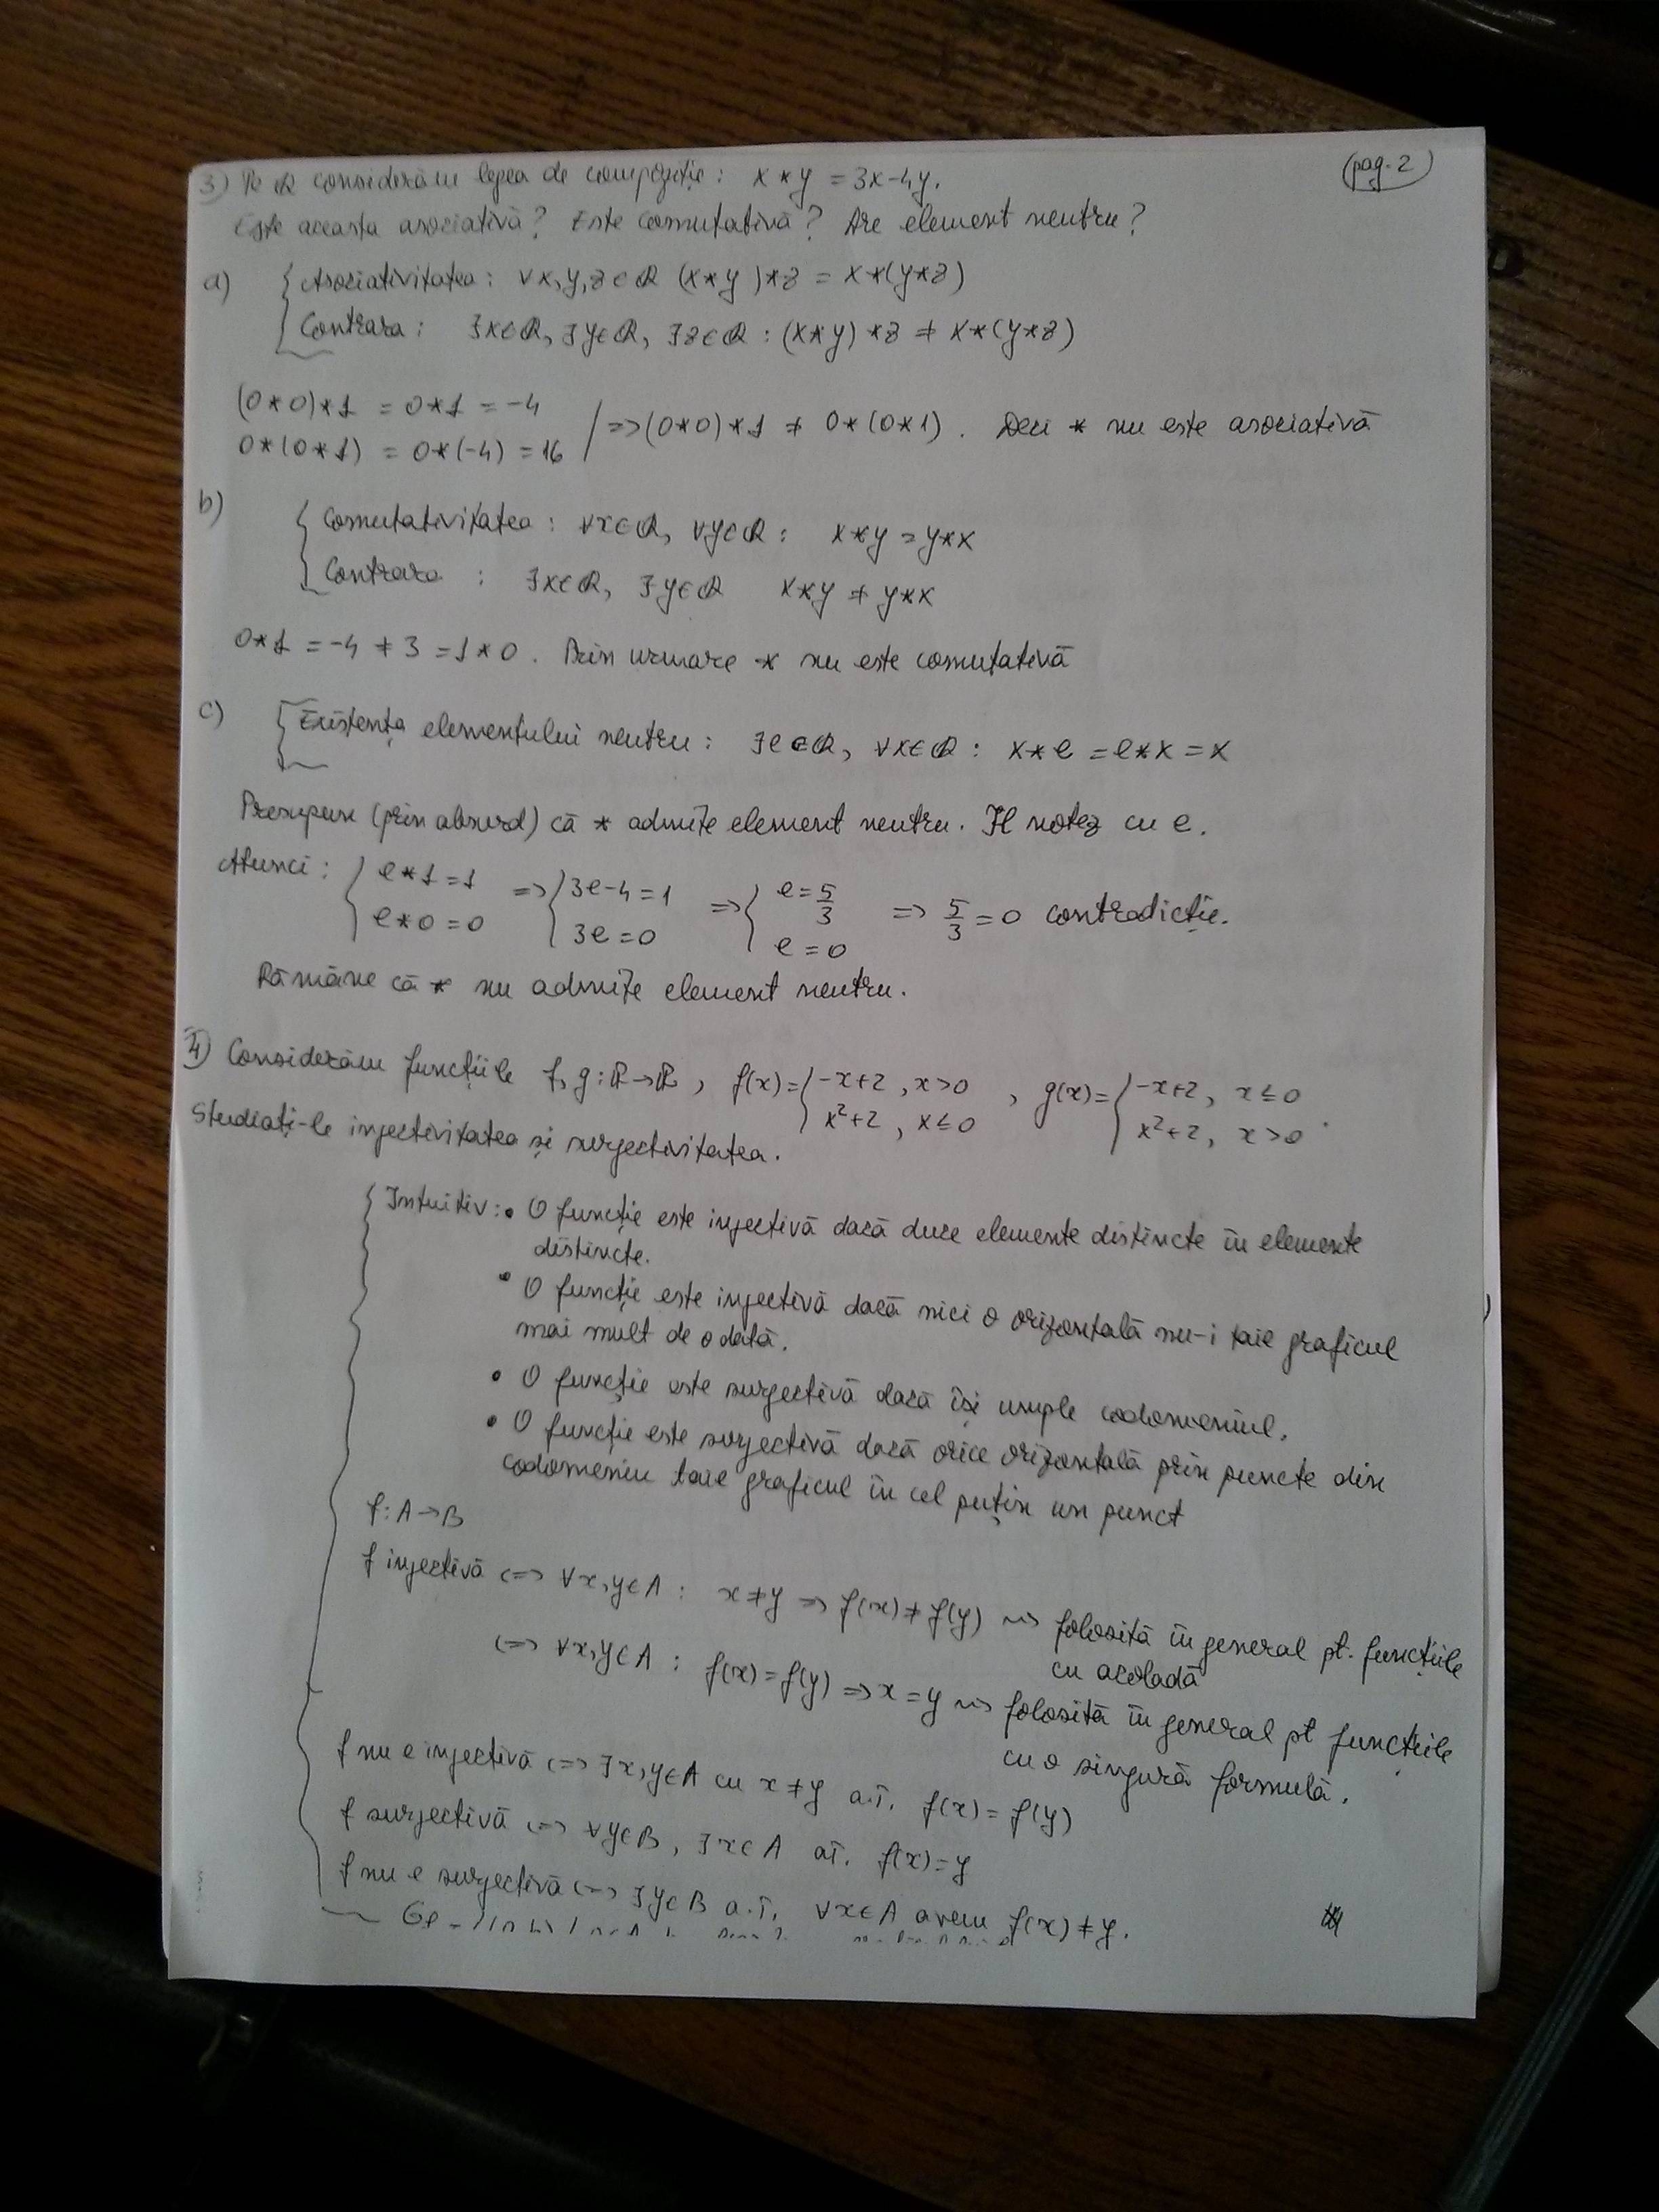 (pag. 2)
3) Pe Q considerăm legea de compoziție: x * y = 3x-4y.
Este aceasta asociativă? Este comutativă? Are element neutru?
a) { Asociativitatea: ∀x,y,z∈Q (x*y)*z = x*(y*z)
Contrara: ∃x∈Q, ∃y∈Q, ∃z∈Q : (x*y)*z ≠ x*(y*z)
(0*0)*1 = 0*1 = -4
0*(0*1) = 0*(-4) = 16 / => (0*0)*1 ≠ 0*(0*1). Deci * nu este asociativă
b) { Comutativitatea: ∀x∈Q, ∀y∈Q : x*y = y*x
Contrara : ∃x∈Q, ∃y∈Q x*y ≠ y*x
0*1 = -4 ≠ 3 = 1*0. Prin urmare * nu este comutativă
c) { Existența elementului neutru: ∃e∈Q, ∀x∈Q : x*e = e*x = x
Presupun (prin absurd) că * admite element neutru. Îl notez cu e.
Atunci: { e*1=1 => { 3e-4=1 => { e=5/3 => 5/3 = 0 contradicție.
e*0=0 3e=0 e=0
Rămâne că * nu admite element neutru.
4) Considerăm funcțiile f, g: R→R, f(x)= { -x+2, x>0 , g(x)= { -x+2, x≤0 .
x²+2, x≤0 x²+2, x>0
Studiați-le injectivitatea și surjectivitatea.
{ Intuitiv: • O funcție este injectivă dacă duce elemente distincte în elemente
distincte.
• O funcție este injectivă dacă nici o orizontală nu-i taie graficul
mai mult de o dată.
• O funcție este surjectivă dacă își umple codomeniul.
• O funcție este surjectivă dacă orice orizontală prin puncte din
codomeniu taie graficul în cel puțin un punct
f: A→B
f injectivă <=> ∀x,y∈A : x≠y => f(x)≠f(y) ~> folosită în general pt. funcțiile
cu acoladă
<=> ∀x,y∈A : f(x)=f(y) => x=y ~> folosită în general pt funcțiile
cu o singură formulă.
f nu e injectivă <=> ∃x,y∈A cu x≠y a.î. f(x)=f(y)
f surjectivă <=> ∀y∈B, ∃x∈A aî. f(x)=y
f nu e surjectivă <=> ∃y∈B a.î. ∀x∈A avem f(x)≠y.